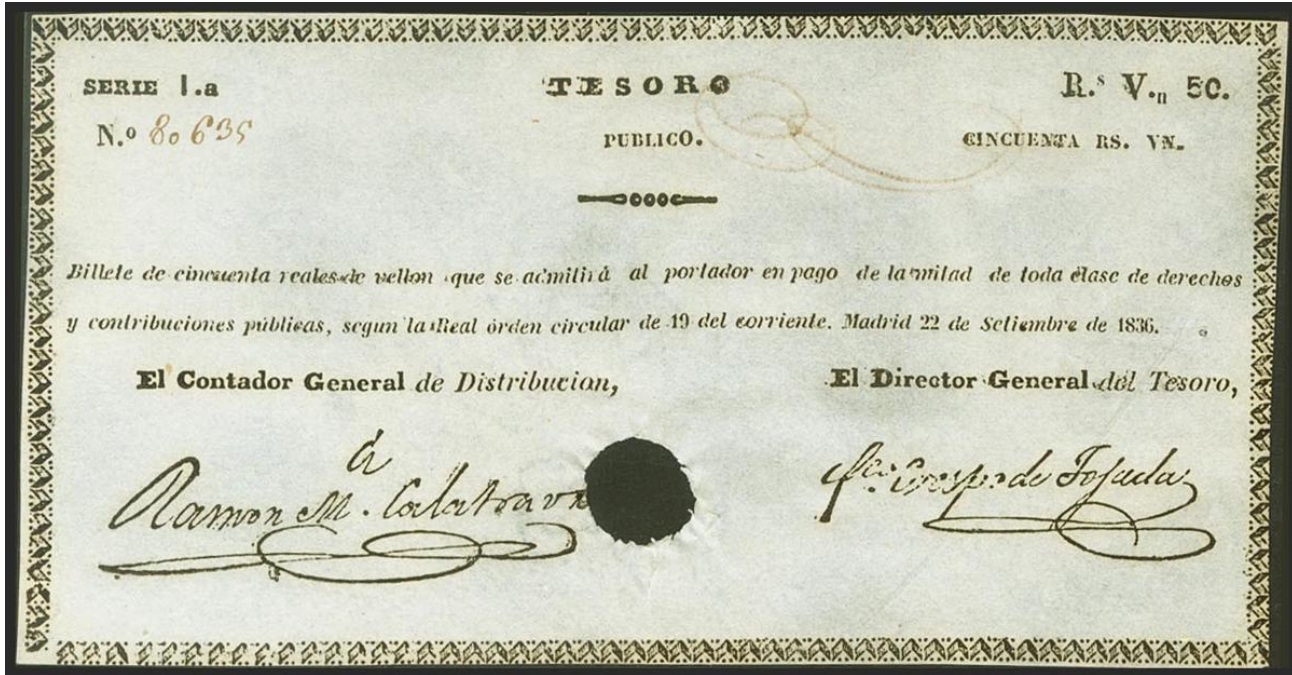 SERIE 1.a TESORO R.s V.n 50.
N.o 80635 PUBLICO. CINCUENTA RS. VN.
Billete de cincuenta reales de vellon que se admitirá al portador en pago de la mitad de toda clase de derechos
y contribuciones públicas, segun la Real órden circular de 19 del corriente. Madrid 22 de Setiembre de 1836.
El Contador General de Distribucion, El Director General del Tesoro,
Ramon M.a Calatrava de Tejada